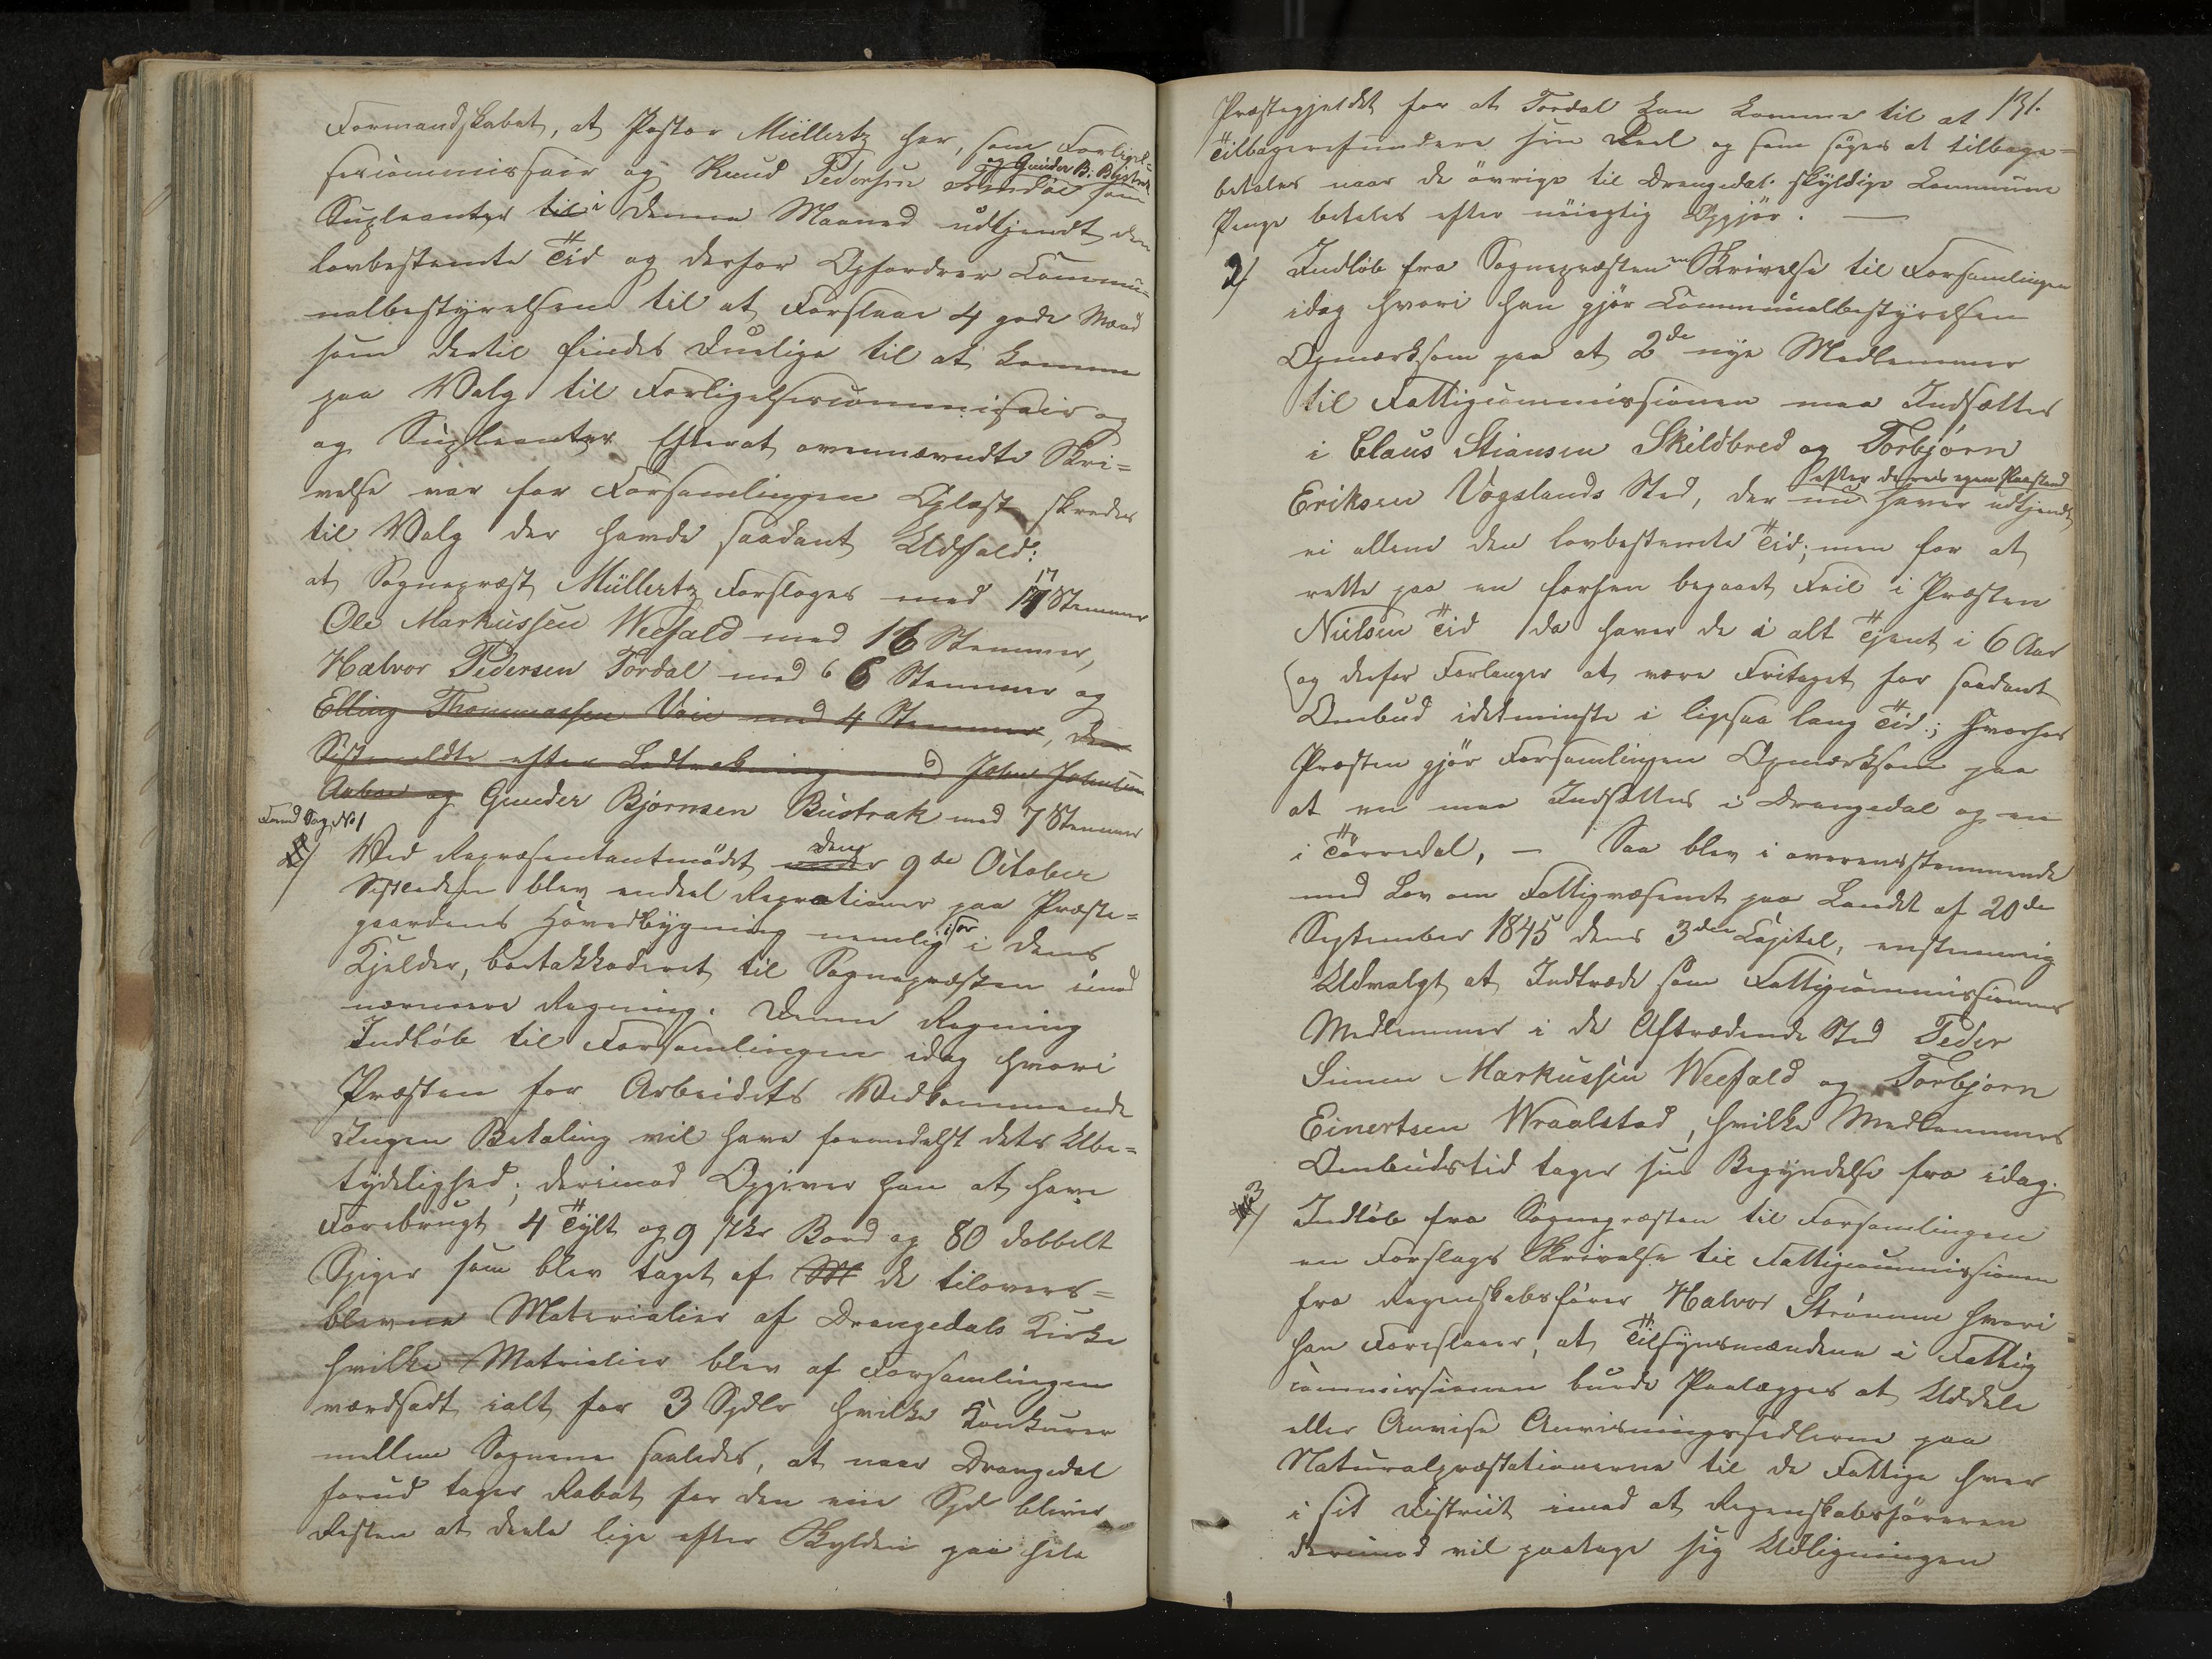 Formandskabet, at Pastor Müllertz her, som Forligel=
sescommissair og Knud Pedersen Tordal som
og Gunder B. Bustrak
Supleanter til i denne Maaned udtjendt den
lovbestemte Tid og derfor Opfordrer Commu=
nalbestyrelsen til at Forslaae 4 gode Mænd
som dertil findes Duelige til at komme
paa Valg til Forligelsescommissair og
og Supleanter Efterat ovennævndte Skri=
velse var for Forsamlingen Oplæst skredes
til Valg der havde saadant Udfald:
at Sognepræst Müllertz Forsloges med 17 Stemmer
Ole Markussen Weefald med 16 Stemmer,
Halvor Pedersen Tordal med 6 Stemmer og
Elling Thommassen Voie med 4 Stemmer, den
Sistmeldte efter Lodtrekning med John Johnsen
Aaboe og Gunder Bjørnsen Bustrak med 7 Stemmer
Sag No 1
Ved Repræsentantmødet under den 9de October
Sistleden blev endeel Reprationer paa Præste=
gaardens Hovedbygning nemlig især i dens
Kjelder, bortakkoderet til Sognepræsten imod
nærmere Regning. Denne Regning
Indløb til Forsamlingen idag hvori
Præsten for Arbeidets Vedkommende
Ingen Betaling vil have formedelst dets Ube=
tydelighed; derimod Opgiver han at have
Forebrugt 4 Tylt og 9 stkr Bord og 80 dobbelt
Spiger som blev taget af M de tilovers=
blevne Materialier af Drangedals Kirke
hvilke Matrialier blev af Forsamlingen
værdsadt ialt for 3 Spdlr hvilke Konkurer
mellem Sognene saaledes, at naar Drangedal
forud tager Rabat for den ene Spd bliver
Resten at deele lige efter Skylden paa hele
131.
Præstegjeldet for at Tordal kan komme til at
Tilbagerefundere sin Deel og som søges at tilbage=
betales naar de øvrige til Drangedal skyldige Commune
Penge betales efter nøiagtig Opgjør. —
2/ Indløb fra Sognepræsten en Skrivelse til Forsamlingen
idag hvori han gjør Communalbestyrelsen
Opmærksom paa at 2de nye Medlemmer
til Fattigcommissionen maa Indsættes
i Claus Stiansen Skildbred og Torbjørn
Eriksen Vogslands Sted, der nu haver udtjendt
efter deres egen Paastand
ei allene den lovbestemte Tid; men for at
rette paa en forhen begaaet Feil i Præsten
Nielsen Tid / da haver de i alt Tjent i 6 Aar
og derfor Forlanger at være Fritaget for saadant
Ombud idetminste i ligesaa lang Tid; hvorfor
Præsten gjør Forsamlingen Opmærksom paa
at en maa Indsættes i Drangedal og en
i Tørredal, — Saa blev i overensstemmende
med Lov om Fattigvæsenet paa Landet af 20de
September 1845 dens 3die Capitel, enstemmig
Udvalgt at Indtræde som Fattigcommissionens
Medlemmer i de Aftrædende Sted Peder
Simen Markussen Weefald og Torbjørn
Einertsen Wraalstad, hvilke Medlemmers
Ombudstid tager sin Begyndelse fra idag.
3/ Indløb fra Sognepræsten til Forsamlingen
en Forslags Skrivelse til Fattigcommissionen
fra Regnskabsfører Halvor Strømme hvori
han Foreslaaer, at Tilsynsmændene i Fattig
commissionen burde Paalægges at Uddele
eller Anvise Anvisningssedlerne paa
Naturalpræstationerne til de Fattige hver
i sit Distrikt imod at Regnskabsføreren
derimod vil paatage sig Udligningen